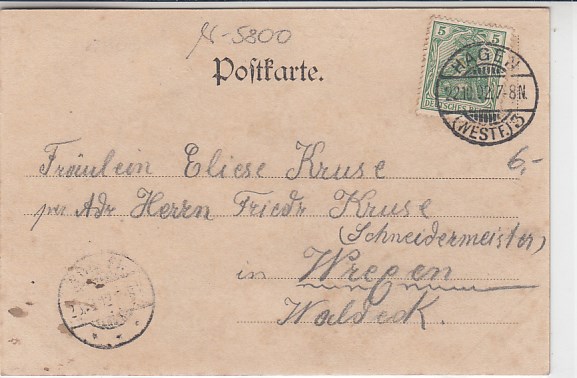 N-5800
Postkarte.
5 5
DEUTSCHES
HAGEN
22.10.02.7-8N.
(WESTF) 3
6,-
Fräulein Eliese Kruse
per Adr Herrn Friedr Kruse
(Schneidermeister)
in Wrexen
Waldeck.